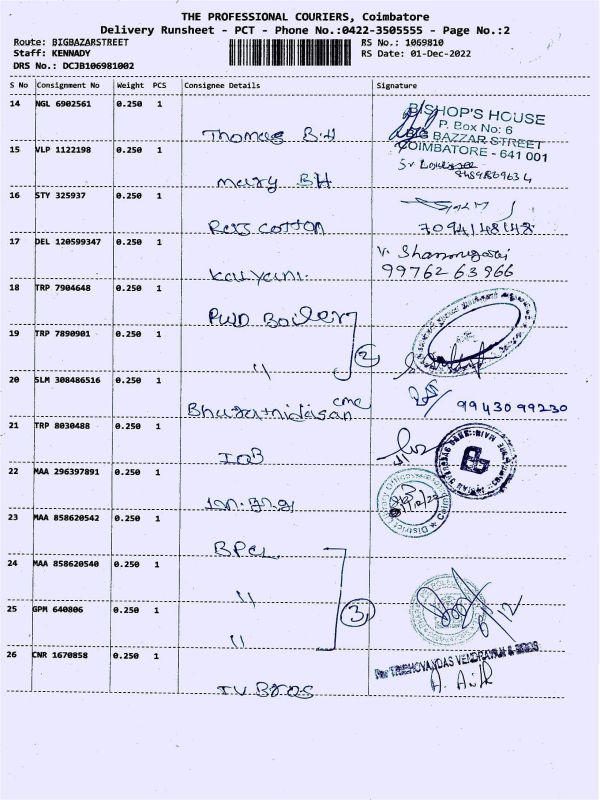 THE PROFESSIONAL COURIERS, Coimbatore
Delivery Runsheet - PCT - Phone No.:0422-3505555 - Page No.:2
Route: BIGBAZARSTREET
Staff: KENNADY
DRS No.: DCJB106981002
RS No.: 1069810
RS Date: 01-Dec-2022
S No Consignment No Weight PCS Consignee Details Signature
14 NGL 6902561 0.250 1 Thomas B.H
BISHOP'S HOUSE
P. Box No: 6
BIG BAZZAR STREET
COIMBATORE - 641 001
15 VLP 1122198 0.250 1 Mary BH
16 STY 325937 0.250 1 Rass cotton
7094148148
17 DEL 120599347 0.250 1 Kalyani.
V. Shanmugasri
99762 63966
18 TRP 7904648 0.250 1 PWD Boiler
19 TRP 7890901 0.250 1 "
2
20 SLM 308486516 0.250 1 Bharathidasan cmc
99430 99230
21 TRP 8030488 0.250 1 IOB
22 MAA 296397891 0.250 1
District Library Officer
23 MAA 858620542 0.250 1 BPCL
24 MAA 858620540 0.250 1 "
25 GPM 640806 0.250 1 "
3
6/12
26 CNR 1670858 0.250 1 T.V. Bros
For TRIBHOVANDAS VENDRAVAN & BROS